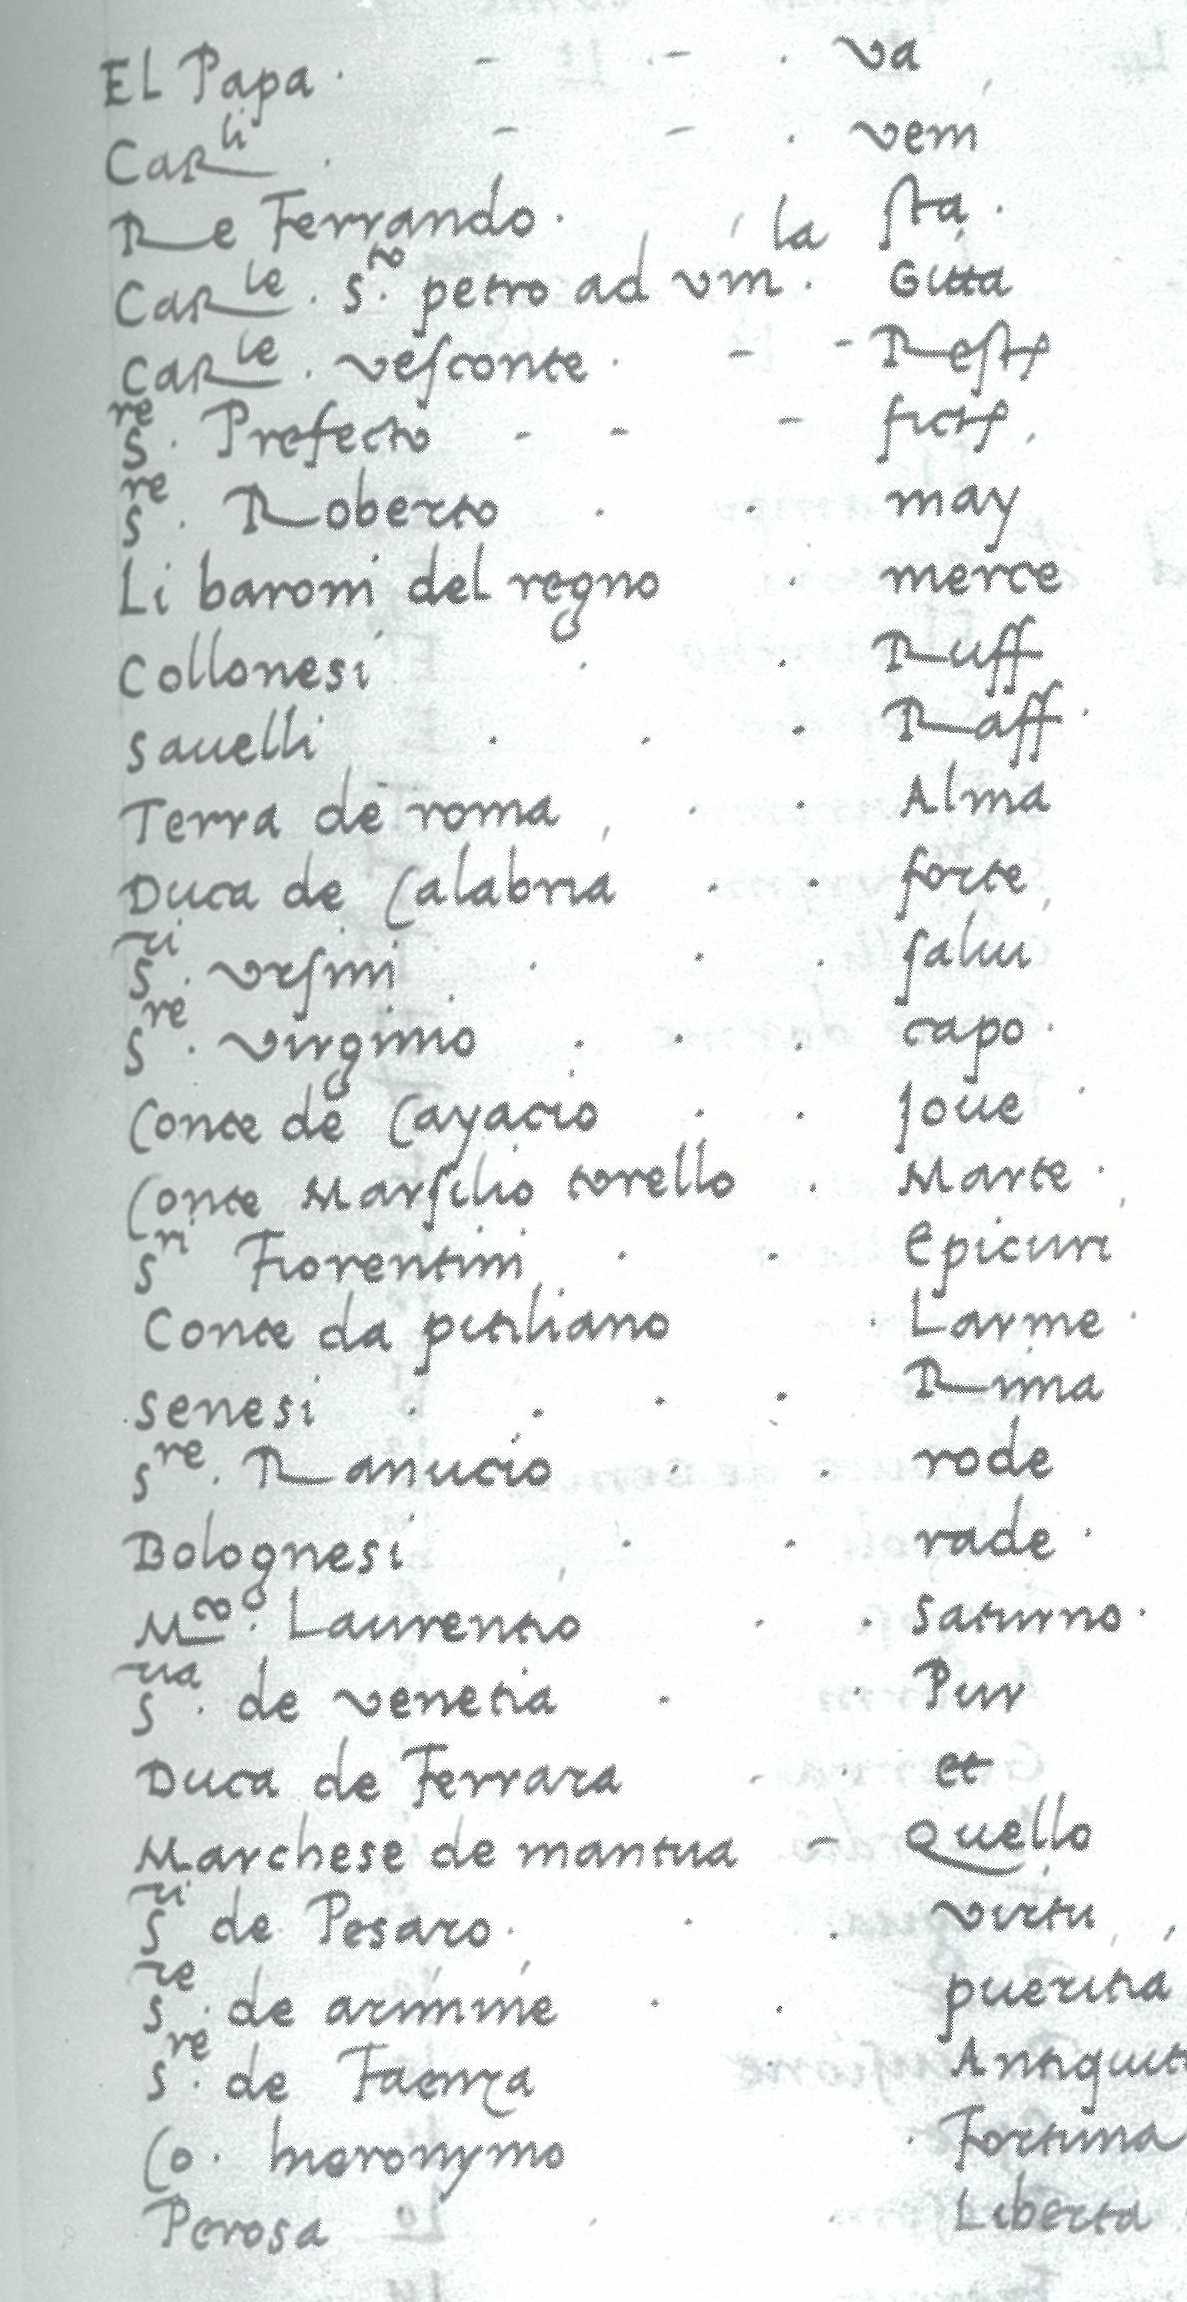 El Papa · - · - · va
Carli · - - · vem
Re Ferrando · la sta ·
Carle · Sto · petro ad vm · Gitta
Carle · vesconte · - - Rest
Sre · Prefecto - - - fict
Sre · Roberto · · may
Li baroni del regno · merce
Collonesi · · Ruff
Sauelli · · · Raff ·
Terra de roma · · Alma
Duca de Calabria · · forte
Sri · vrsini · · · salui
Sre · virginio · · · capo ·
Conte de Cayacio · · Joue
Conte Marsilio torello · Marte ·
Sri Fiorentini · · Epicuri
Conte da pitiliano · Larme ·
Senesi · · · · Rima
Sre · Ranucio · · rode
Bolognesi · · rade ·
Mco · Laurentio · · Saturno ·
Sria · de venetia · · Pur
Duca de Ferrara - · et
Marchese de mantua - Quello
Sri de Pesaro · · · virtu
Sre · de arimine · · pueritia
Sre · de Faenza · Antiquit
Co · hieronymo · Fortuna
Perosa · · Liberta